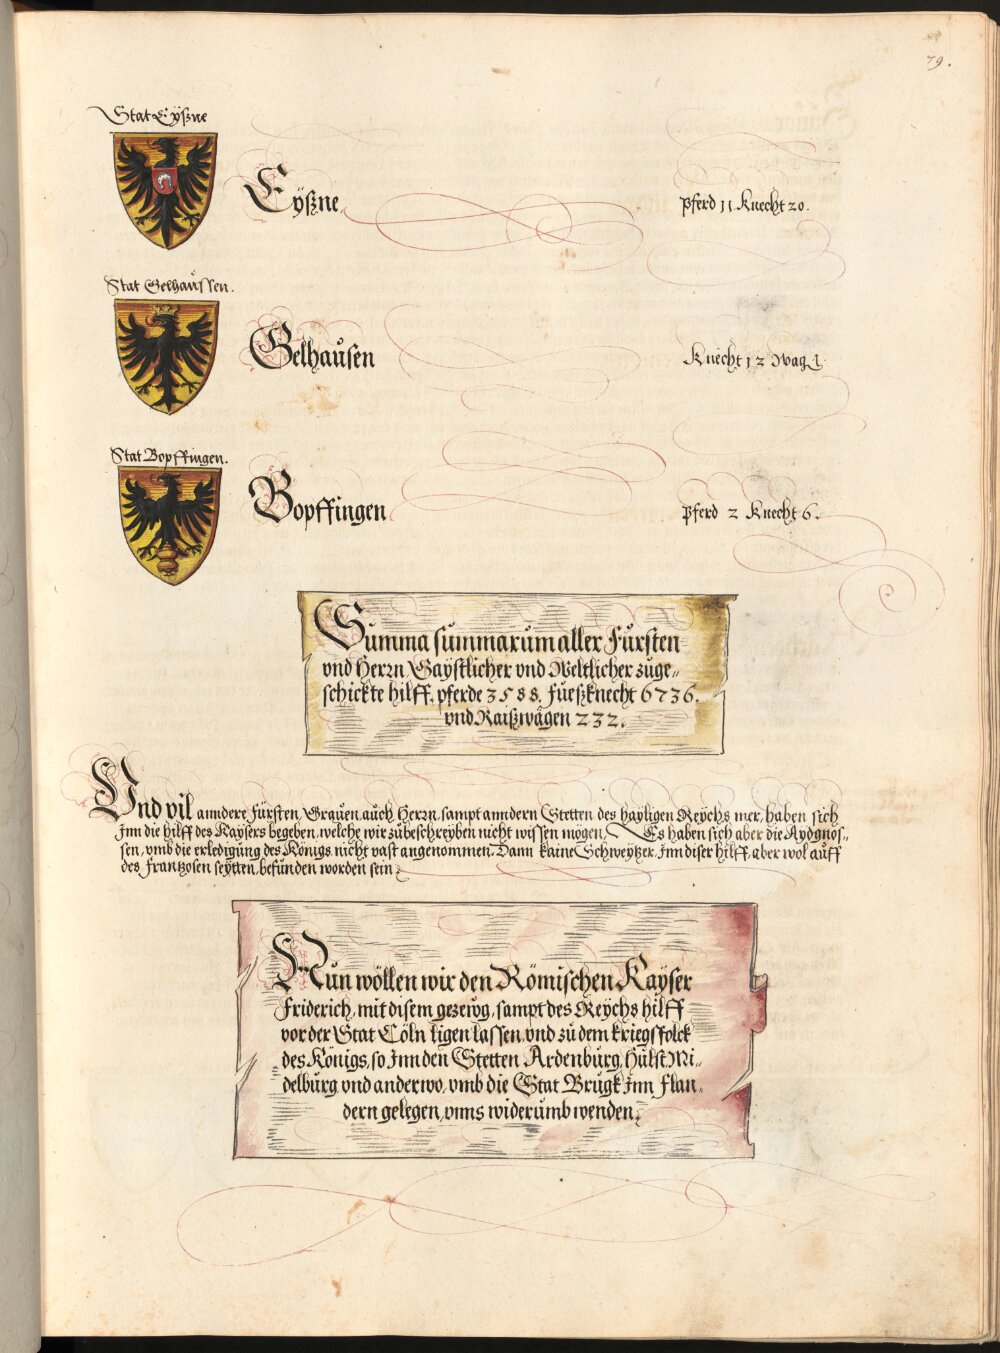 79.
Stat Eÿßne
Eÿßne
Pferd 11 Knecht 20.
Stat Gelhaussen.
Gelhausen
Knecht 12 Wag 1
Stat Bopffingen.
Bopffingen
Pferd 2 Knecht 6.
Summa summarum aller Fursten
vnd Herrn Gaÿstlicher vnd Weltlicher zuge„
schickte hilff. pferde 3588. fueßknecht 6736.
vnd Raißwägen 232.
Vnd vil anndere Fürsten, Grauen, auch Herrn, sampt anndern Stetten des haÿligen Reÿchs mer, haben sich
Jnn die hilff des Kaÿsers begeben, welche wir zubeschreÿben nicht wissen mögen, Es haben sich aber die Aÿdgnos„
sen, vmb die erledigung des Königs, nicht vast angenommen. Dann kaine Schweÿtzer, Jnn diser hilff, aber wol auff
des Frantzosen seÿtten, befunden worden sein
Nun wöllen wir den Römischen Kaÿser
Friderich, mit disem gezewg, sampt des Reÿchs hilff
vor der Stat Cöln ligen lassen, vnd zu dem kriegsfolck
des Königs, so Jnn den Stetten Ardenburg, Hülst Mi„
delburg vnd anderwo, vmb die Stat Brugk Jnn Flan„
dern gelegen, vnns widerumb wenden.